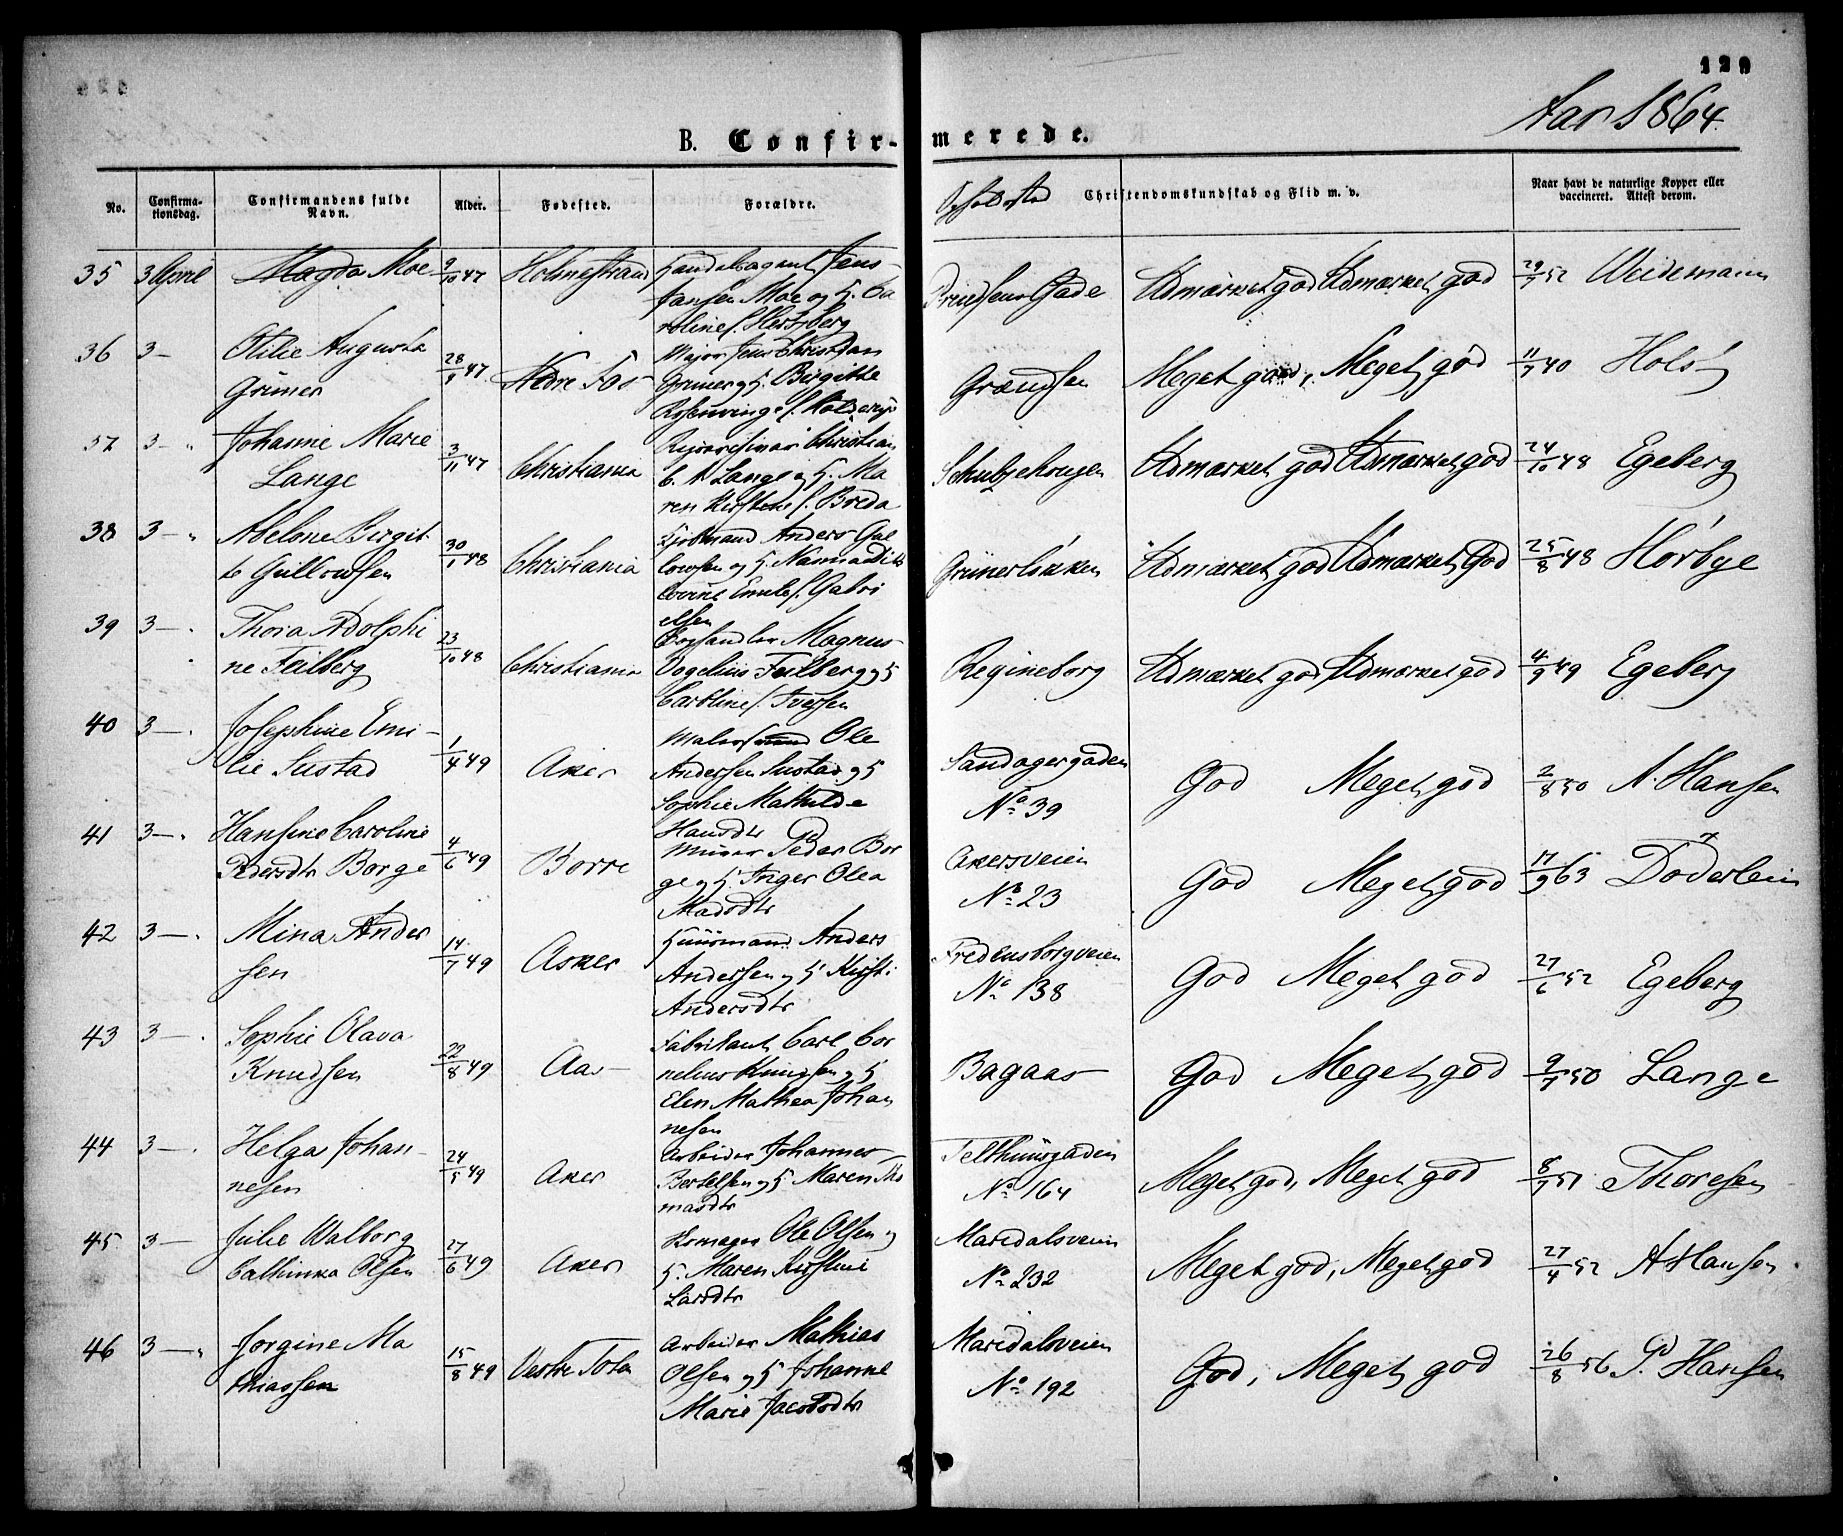 129
Aar 1864.
B. Confir-merede.
No. Confirmationsdag. Confirmandens fulde Navn. Alder. Fødested. Forældre. Opholdssted Christendomskundskab og Flid m. v. Naar havt de naturlige Kopper eller vaccineret. Attest derom.
35 3 April Magda Moe 9/10 47 Holmestrand Handelsagent Jens
Jansen Moe og H. Ca
roline f. Hertzberg Prindsens Gade Udmærket god Udmærket god 29/7 52 Weidemann
36 3 — Otilie Augusta
Grüner 28/9 47 Nedre Fos Major Jens Christian
Grüner og H. Birgitte
Rosenvinge f. Grændsen Meget god, Meget god 11/7 40 Holst
37 3 — " Johanne Marie
Lange 3/11 47 Christiania Christian
C. A. Lange og H. Ma
ren Kirstine f. Breda Udmærket god Udmærket god 24/10 48 Egeberg
38 3 — " Abelone Birgit
te Gullowsen 30/1 48 Christiania Anders Gul
lowsen og H.
Emelie f. Gabri
elsen Grünerløkken Udmærket god Udmærket God 25/8 48 Hørbye
39 3 — . Thora Adolphi
ne Feilberg 23/10 48 Christiania Boghandler Magnus
Vogelius Feilberg og H
Caroline f. Iversen Regineborg Udmærket god, Udmærket god 4/9 49 Egeberg
40 3 — . Josephine Emi-
lie Sustad 1/4 49 Aker Ole
Andersen Sustad og H
Sophie Mathilde
Hansdtr Sandagergaden
No 39 God Meget god 2/8 50 A. Hansen
41 3 — . Hansine Caroline
Pedersdtr Borge 4/6 49 Borre Murer Peder Bor
ge og H. Inger Olea
Madsdtr Akersveien
No 23 God Meget god 17/9 63 Döderlein
42 3 — . Mina Ander
sen 14/7 49 Asker Huusmand Anders
Andersen og H Kirsti
Andersdtr Fredensborgveien
No 138 God Meget god 27/6 52 Egeberg
43 3 — . Sophie Olava
Knudsen 22/8 49 Aas Fabrikant Carl Cor
nelius Knudsen og H
Elen Mathea Johan
nesen Bagaas God Meget god 9/7 50 Lange
44 3 — . Helga Johan-
nesen 24/5 49 Aker Arbeider Johannes
Bertelsen og H Maren Tho
masdtr Telthuusgaden
No 164 Meget god, Meget god 8/7 51 Thoresen
45 3 — Julie Walborg
Cathinka Olsen 27/6 49 Aker Skomager Ole Olsen og
H. Maren Kirstine
Larsdtr Maridalsveien
No 232 Meget god, Meget god 27/4 52 A Hansen.
46 3 — " Jørgine Ma
thiassen 15/8 49 Vestre Toten Arbeider Mathias
Olsen og H Johanne
Marie Jacobsdtr Maridalsveien
No 192 God, Meget god 26/8 56 P. Hansen